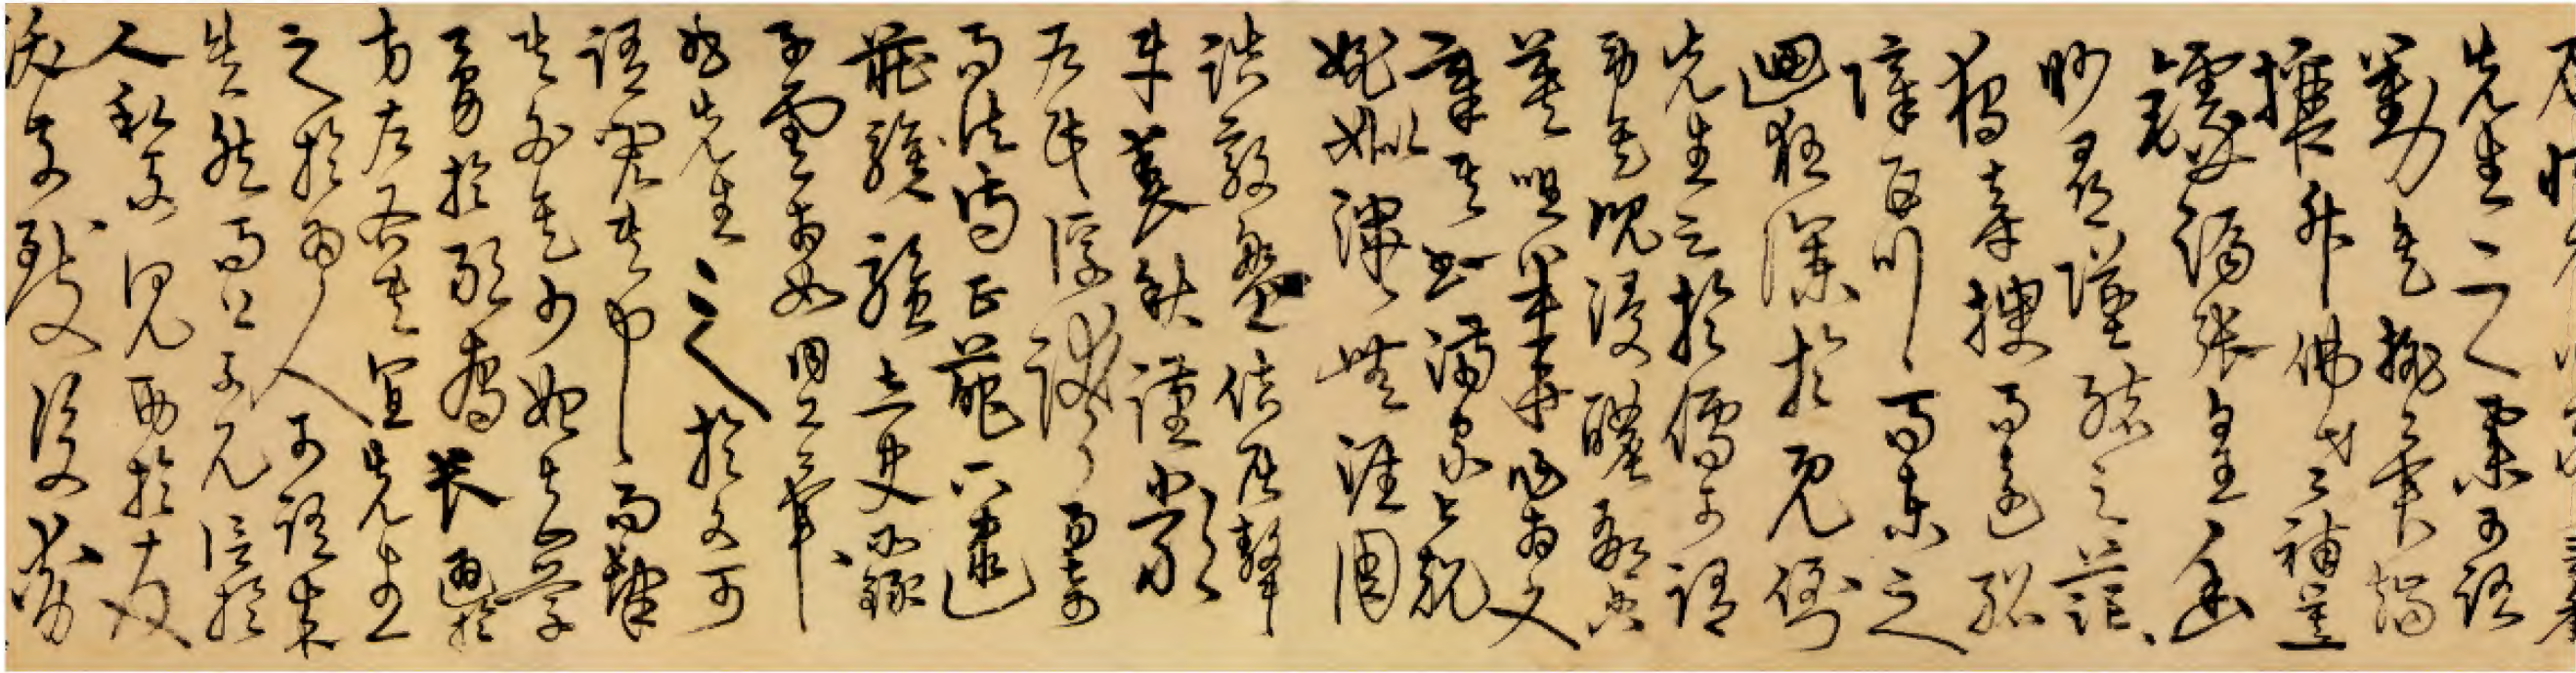 先生之業可謂
勤矣觝排異端
攘斥佛老補苴
罅漏張皇幽
眇尋墜緒之茫茫
獨旁搜而遠紹
障百川而東之
迴狂瀾於既倒
先生之於儒可謂
勞矣沉浸醲郁含
英咀華作為文
章其書滿家上規
姚姒渾渾無涯周
誥殷盤佶屈聱
牙春秋謹嚴
左氏浮誇易奇
而法詩正而葩下逮
莊騷太史所錄
子雲相如同工異曲
先生之於文可
謂閎其中而肆
其外矣少始知學
勇於敢為長通於
方左右具宜先生
之於為人可謂成
矣然而公不見信於
人私不見助於友
跋前躓後動